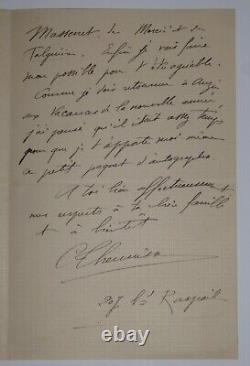 Massenet, de Monet et de
Falguière. Enfin je vais faire
mon possible pour t'être agréable.
Comme je dois retourner à
aux vacances de la nouvelle année
j'ai pensé qu'il était assez temps
pour que je t'apporte moi même
ce petit paquet d'autographes
A toi bien affectueusement
nos respects à ta bien famille
et à bientôt
207 Bd Raspail